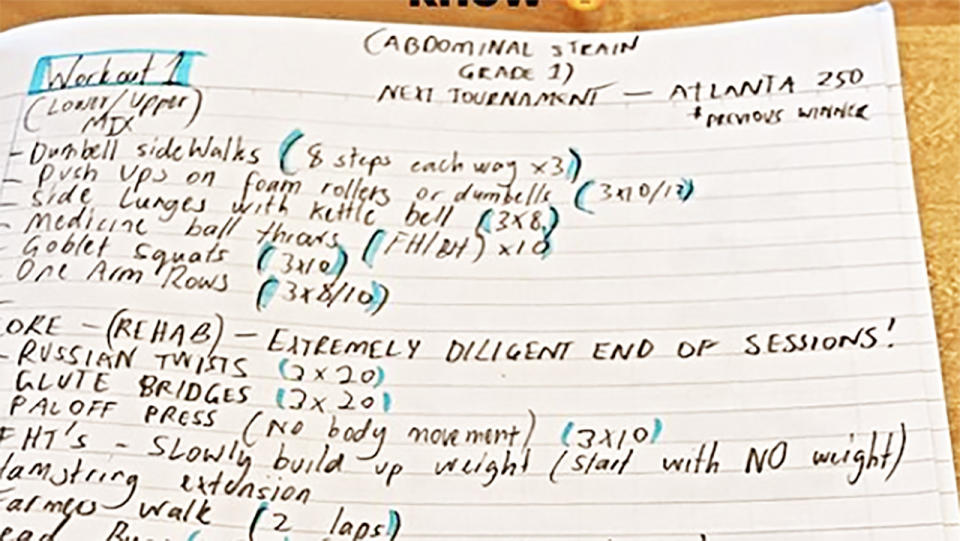 KNOW
(ABDOMINAL STRAIN
GRADE 1)
NEXT TOURNAMENT — ATLANTA 250
* PREVIOUS WINNER
Workout 1
(Lower/Upper)
MIX
- Dumbell sideWalks (8 steps each way x3)
- Push ups on foam rollers or dumbells (3x10/12)
- Side Lunges with kettle bell (3x8)
- Medicine ball throws (FH/BH) x10
- Goblet Squats (3x10)
- One Arm Rows (3x8/10)
ORE - (REHAB) - EXTREMELY DILIGENT END OF SESSIONS!
- RUSSIAN TWISTS (3x20)
GLUTE BRIDGES (3x20)
PALOFF PRESS (No body movement) (3x10)
FHT'S - SLOWLY build up weight (start with NO weight)
Hamstring extension
Farmers walk (2 laps)